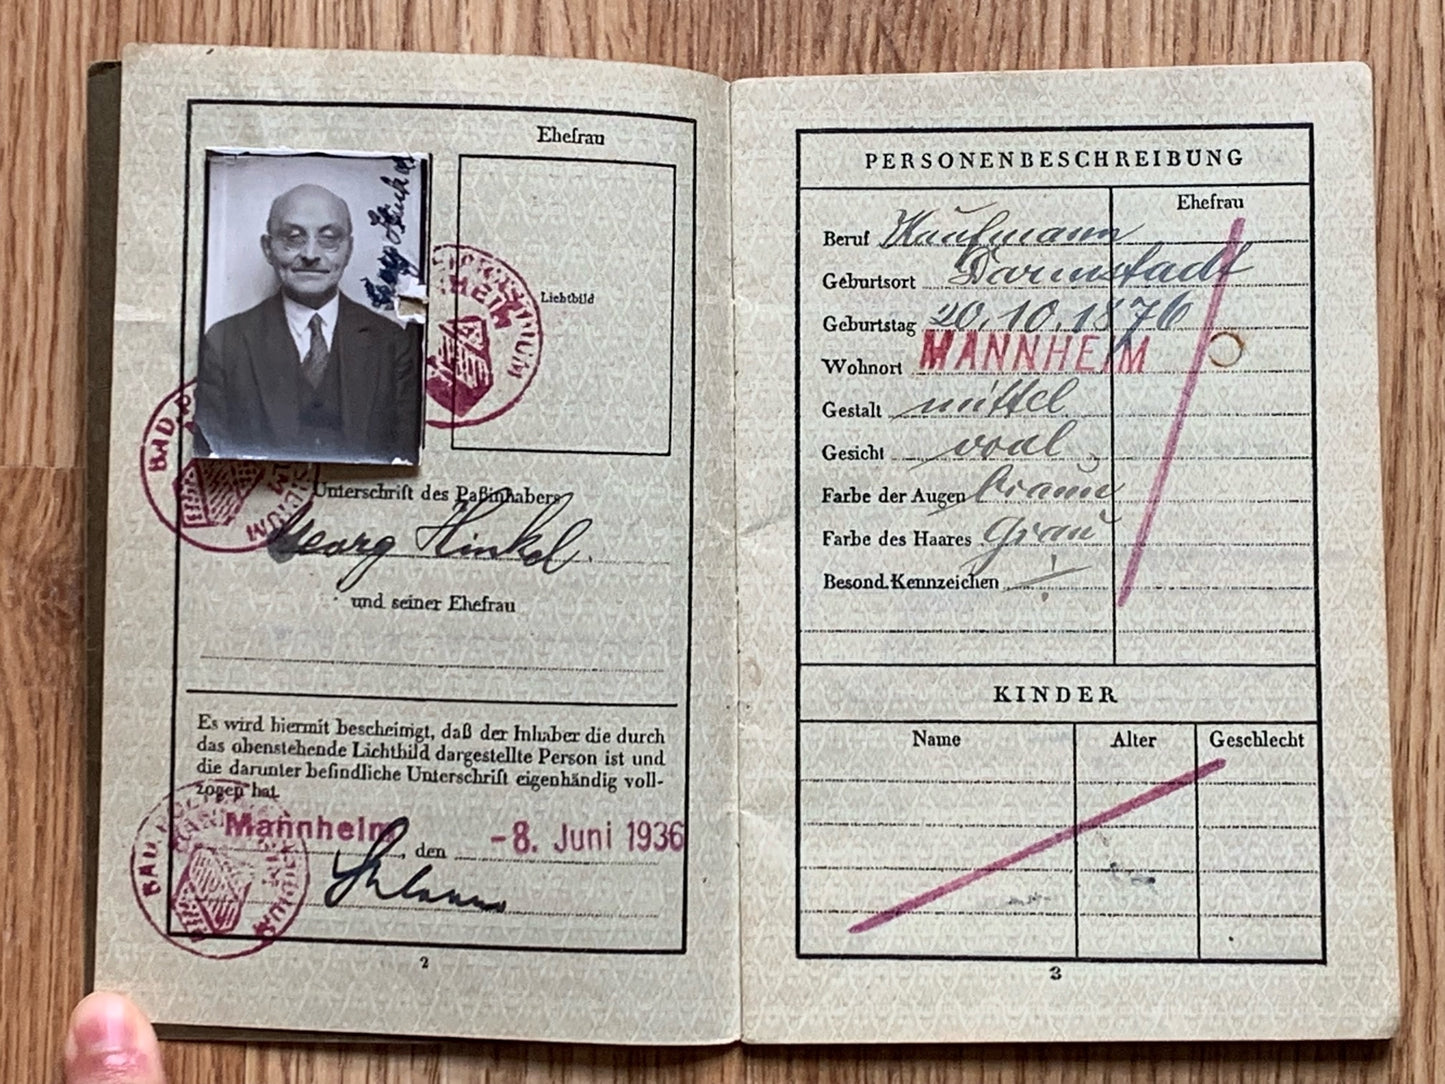 Ehefrau
Lichtbild
BAD.
Unterschrift des Paßinhabers
Georg Hinkel.
und seiner Ehefrau
Es wird hiermit bescheinigt, daß der Inhaber die durch
das obenstehende Lichtbild dargestellte Person ist und
die darunter befindliche Unterschrift eigenhändig voll-
zogen hat.
Mannheim, den -8. Juni 1936
BAD.
2
PERSONENBESCHREIBUNG
Ehefrau
Beruf Kaufmann
Geburtsort Darmstadt
Geburtstag 20.10.1876
Wohnort MANNHEIM
Gestalt mittel
Gesicht oval
Farbe der Augen braun
Farbe des Haares grau
Besond. Kennzeichen
KINDER
Name Alter Geschlecht
3